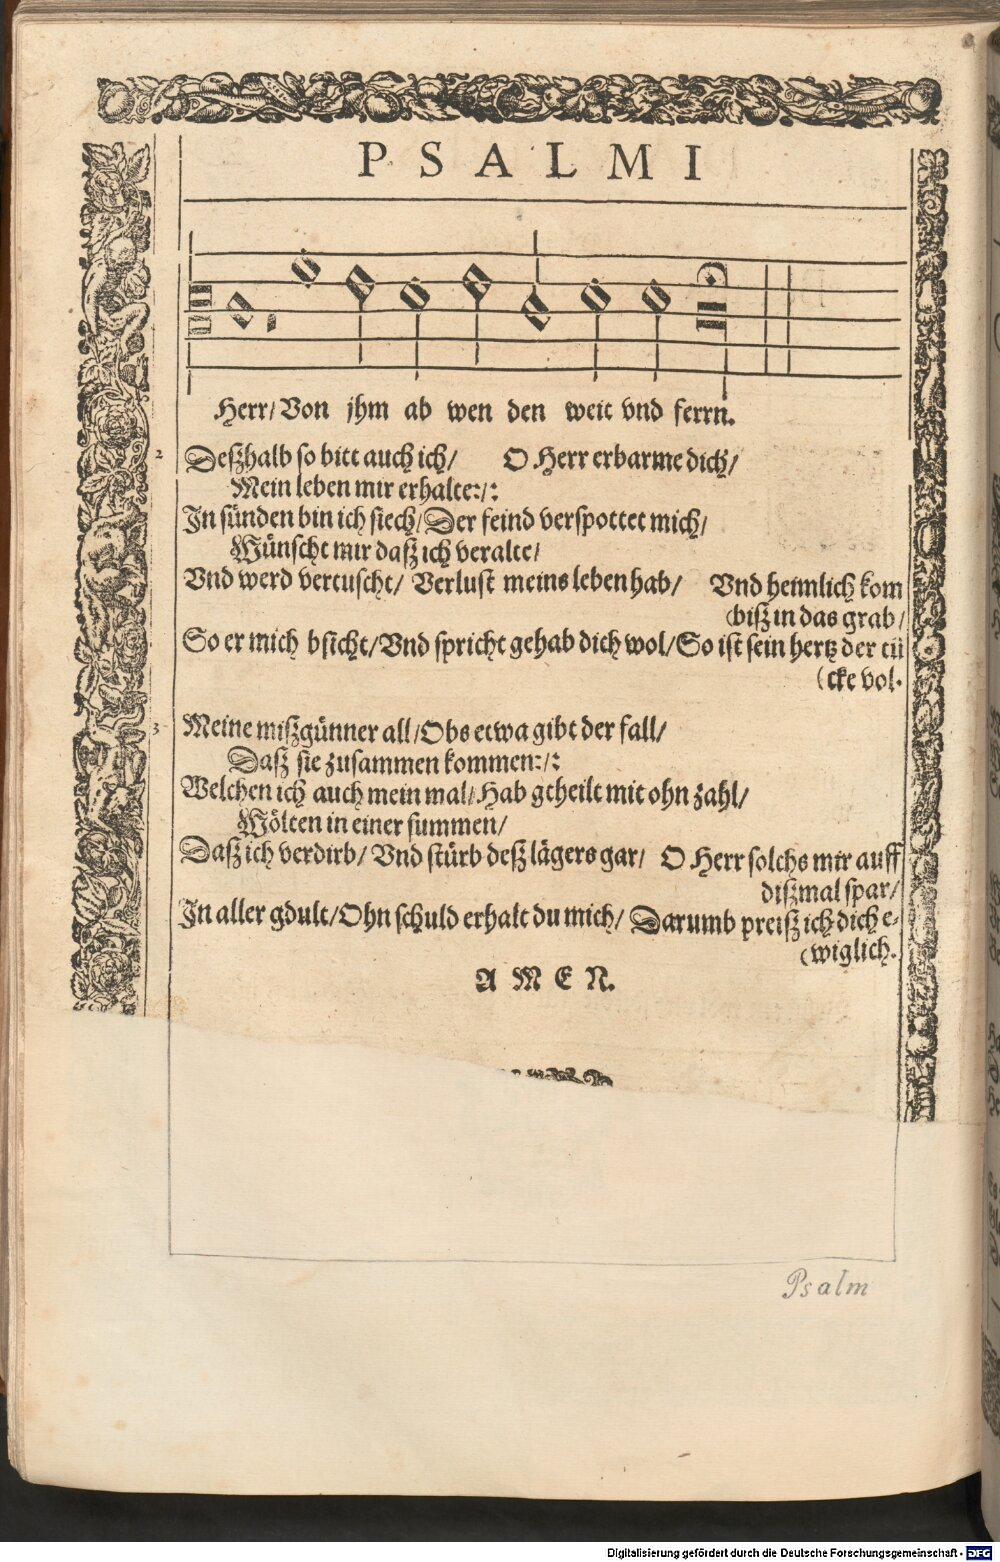 PSALMI
Herr/Von jhm ab wen den weit vnd ferrn.
2 Deßhalb so bitt auch ich/ O Herr erbarme dich/
Mein leben mir erhalte:/:
In sünden bin ich siech/Der feind verspottet mich/
Wünscht mir daß ich veralte/
Vnd werd vertuscht/ Verlust meins leben hab/ Vnd heimlich kom
(biß in das grab/
So er mich bsicht/Vnd spricht gehab dich wol/So ist sein hertz der tü
(cke vol.
3 Meine mißgünner all/Obs etwa gibt der fall/
Daß sie zusammen kommen:/:
Welchen ich auch mein mal/Hab gtheilt mit ohn zahl/
Wölten in einer summen/
Daß ich verdirb/ Vnd stürb deß lägers gar/ O Herr solchs mir auff
dißmal spar/
In aller gdult/Ohn schuld erhalt du mich/ Darumb preiß ich dich e-
(wiglich.
AMEN.
Psalm
Digitalisierung gefördert durch die Deutsche Forschungsgemeinschaft - DFG